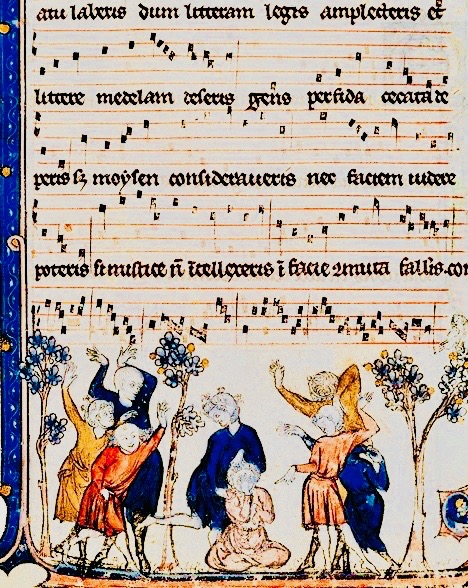 atu laberis dum litteram legis amplecteris et
littere medelam deseris gens perfida cecata de
peris si moysen consideraveris nec faciem videre
poteris si mistice n̄ ītellexeris ī facie 2muta fallis. con